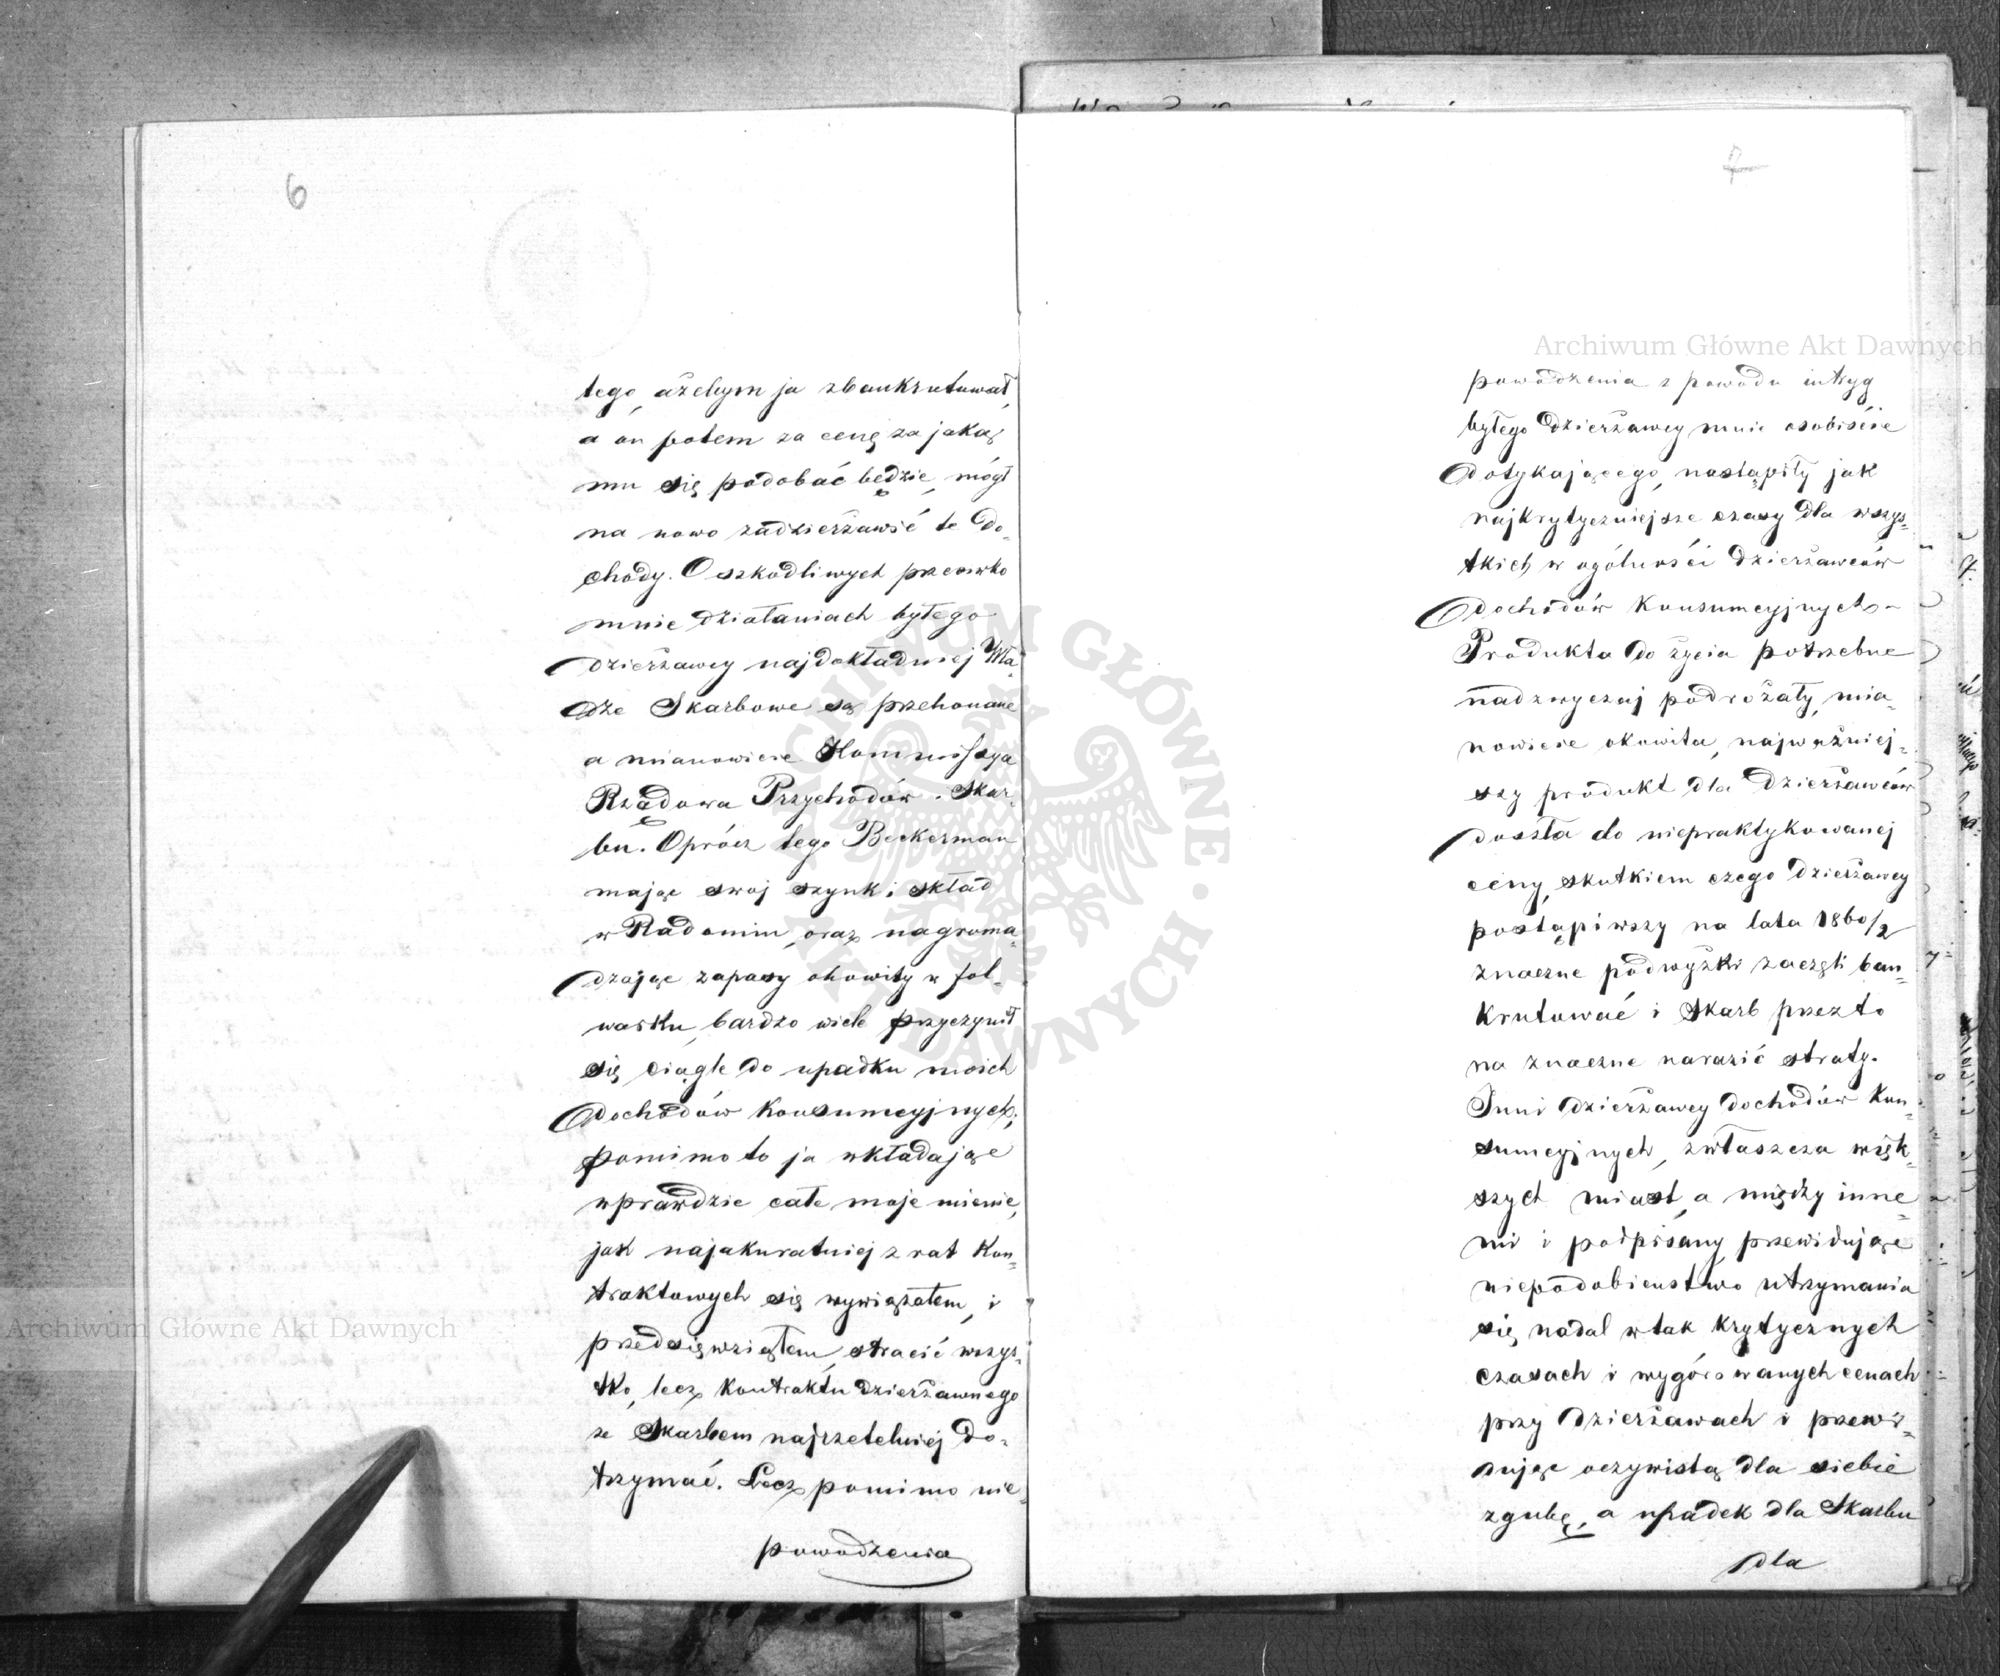 6
tego, ażebym ja zbankrutował,
a on potem za cenę za jaką
mu się podobać będzie, mógł
na nowo zadzierżawić te Do-
chody. O szkodliwych przeciwko
mnie działaniach byłego
dzierżawcy najdokładniej Wła-
dze Skarbowe są przekonane
a mianowicie Kommissya
Rządowa Przychodów i Skar-
bu. Oprócz tego Beckerman
mając swój szynk i skład
w Radomiu, oraz nagroma-
dzając zapasy okowity w fol-
warku, bardzo wiele przyczynił
się ciągle do upadku moich
Dochodów Konsumcyjnych;
pomimo to ja wkładając
wprawdzie całe moje mienie,
jak najakuratniej z rat Kon-
traktowych się wywiązałem, i
przedsięwziąłem, stracić wszys-
tko, lecz Kontraktu dzierżawnego
ze Skarbem najrzetelniej do-
trzymać. Lecz pomimo nie-
powodzenia
7
powodzenia z powodu intryg
byłego Dzierżawcy mnie osobiście
Dotykającego, nastąpiły jak
najkrytyczniejsze czasy dla wszys-
tkich w ogólności Dzierżawców
Dochodów Konsumcyjnych –
Produkta do życia potrzebne
nadzwyczaj podrożały, mia-
nowicie okowita, najważniej-
szy produkt dla Dzierżawców
doszła do niepraktykowanej
ceny, skutkiem czego Dzierżawcy
postąpiwszy na lata 1860/2
znaczne podwyżki zaczęli ban-
krutować i Skarb przezto
na znaczne narazić straty.
Inni dzierżawcy dochodów Kon-
sumcyjnych, zwłaszcza więk-
szych miast, a między inne-
mi i podpisany przewidując
niepodobieństwo utrzymania
się nadal w tak krytycznych
czasach i wygórowanych cenach
przy Dzierżawach i przewi-
dując oczywistą dla siebie
zgubę, a upadek dla Skarbu
dla
Archiwum Główne Akt Dawnych
Archiwum Główne Akt Dawnych
ARCHIWUM GŁÓWNE AKT DAWNYCH